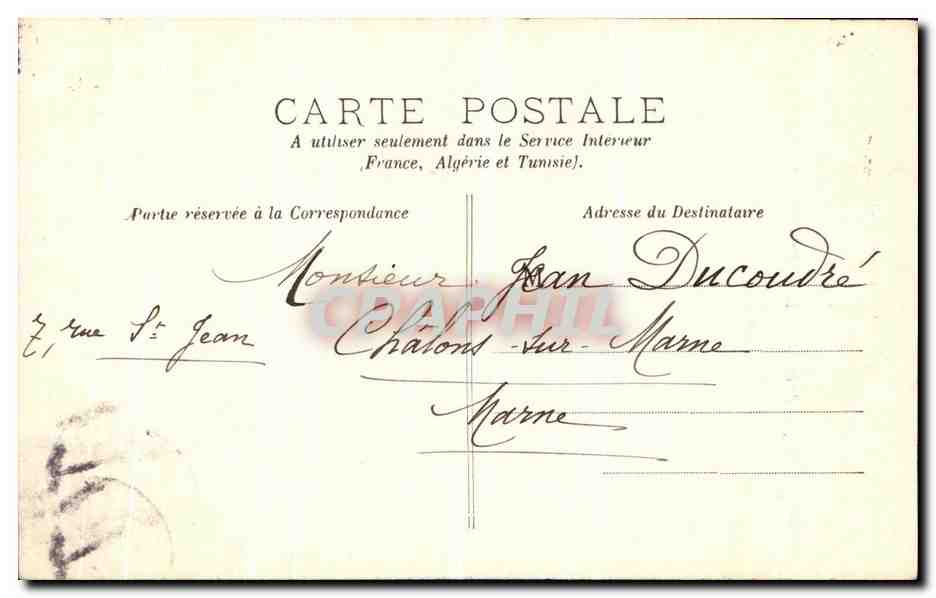 CARTE POSTALE
A utiliser seulement dans le Service Intérieur
(France, Algérie et Tunisie).
Partie réservée à la Correspondance
Adresse du Destinataire
Monsieur Jean Ducoudré
7, rue St Jean
Châlons-sur-Marne
Marne
CPAPHIL